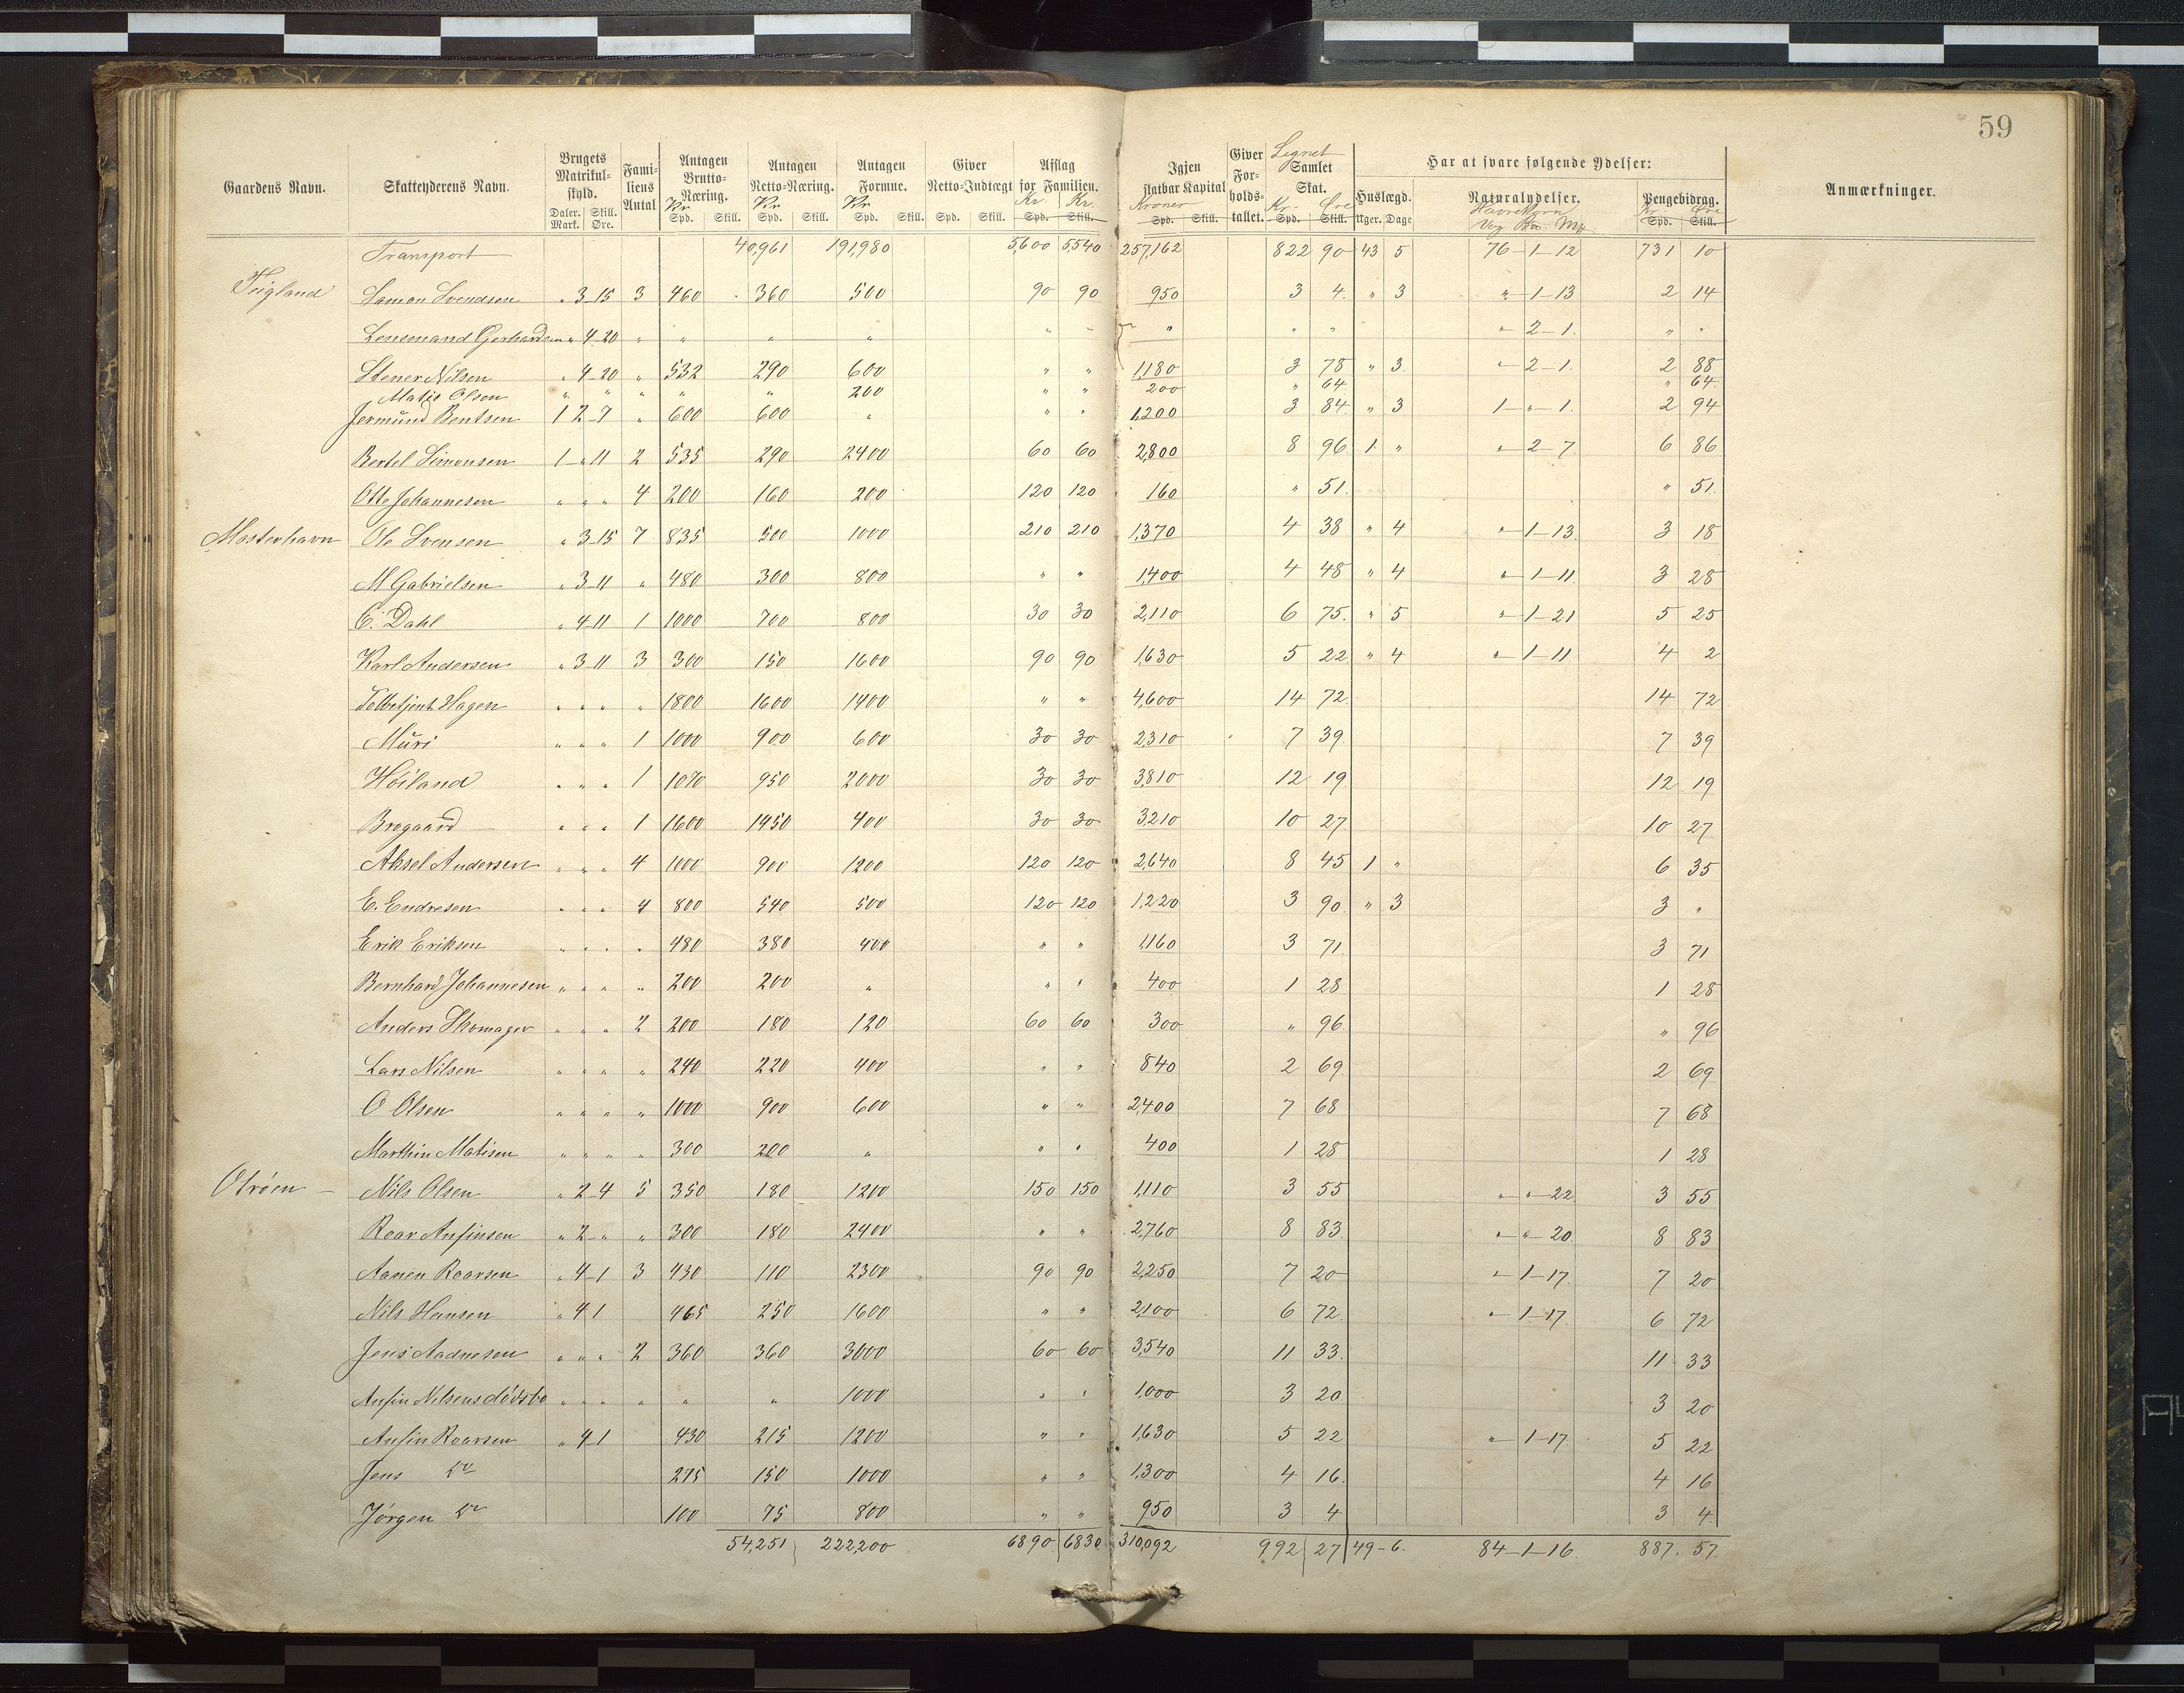 59
Gaardens Navn. Skatteyderens Navn. Brugets Matrikulskyld. Daler. Mark. Skill. Øre. Familiens Antal Antagen Brutto-Næring. Kr Spd. Skill. Antagen Netto-Næring. Kr Spd. Skill. Antagen Formue. Kr Spd. Skill. Giver Netto-Indtægt Spd. Skill. Afslag for Familien. Kr. Kr. Spd. Skill. Igjen skatbar Kapital Kroner Spd. Skill. Giver Forholdstallet. Lignet Samlet Skat. Kr. Øre Spd. Skill. Har at svare følgende Ydelser: Huslægd. Uger. Dage Naturalydelser. Havrekorn Vog Bn. Mk Pengebidrag. Kr Øre Spd. Skill. Anmærkninger.
Transport 40,961 191,980 5,600 5,540 257,162 822 90 43 5 76-1-12 731 10
Teigland Samon Svendsen " 3 15 3 460 360 500 90 90 950 3 4 " 3 "-1-13 2 14
Lensmand Gerhardsen " 4-20 " " " " " - " " " "-2-1. " "
Stener Nilsen " 4-20 " 532 290 600 " " 1180 3 78 " 3 "-2-1. 2 88
Matis Olsen " " " " " " 200 " " 200 " 64 " 64
Jermund Bentsen 1 2-7 " 600 600 " " " 1,200 3 84 " 3 1-"-1. 2 94
Bertel Simonsen 1-"11 2 535 290 2400 60 60 2,800 8 96 1 " "-2-7 6 86
Otto Johannesen " " " 4 200 160 200 120 120 160 " 51. " 51.
Mosterhavn Ole Svensen " 3-15 7 835 500 1000 210 210 1,370 4 38 " 4 "-1-13. 3 18
M Gabrielsen " 3-11 " 480 300 800 " " 1,400 4 48 " 4 "-1-11 3 28
C. Dahl " 4-11 1 1000 700 800 30 30 2,110 6 75. " 5 "-1-21 5 25
Karl Andersen " 3-11 3 300 150 1600 90 90 1,630 5 22 " 4 "-1-11. 4 2
Toldbetjent Hagen " " " " 1800 1600 1400 " " 4,600 14 72. 14 72
Muri " " " 1 1000 900 600 30 30 2,310 7 39. 7 39
Høiland " " " 1 1070 950 2000 30 30 3,810 12 19 12 19
Brogaard " " " 1 1600 1450 400 30 30 3,210 10 27 10 27
Aksel Andersen " " " 4 1000 900 1200 120 120 2,640 8 45 1 " 6 35
E. Endresen " " " 4 800 540 500 120 120 1,220 3 90 " 3 3 "
Erik Eriksen " " " " 480 380 400 " " 1,160 3 71 3 71
Bernhard Johannesen " " " " 200 200 " " " 400 1 28 1 28
Anders Skomager " " " 2 200 180 120 60 60 300 " 96 " 96
Lars Nilsen " " " " 240 220 400 " " 840 2 69 2 69
O Olsen " " " " 1000 900 600 " " 2,400 7 68 7 68
Marthin Matisen " " " " 300 200 " " " 400 1 28 1 28
Otrøen Nils Olsen " 2-4 5 350 180 1200 150 150 1,110 3 55 "-"-22. 3 55
Roar Ansinsen " 2-" " 300 180 2400 " " 2,760 8 83 "-"-20. 8 83
Aanen Roarsen " 4-1 3 430 110 2300 90 90 2,250 7 20 "-1-17. 7 20
Nils Hansen " 4 1 465 250 1600 " " 2,100 6 72. "-1-17. 6 72
Jens Aadnesen " " " 2 360 360 3000 60 60 3,540 11 33. 11 33
Ansin Nilsens dødsbo " " " " " " 1000 " " 1,000 3 20 3 20
Ansin Roarsen " 4 1 430 215 1200 " " 1,630 5 22 "-1-17. 5 22
Jens do 275 150 1000 " " 1,300 4 16. 4 16
Jørgen do 100 75 800 " " 950 3 4 3 4
54,251 222,200 6890 6830 310,092 992 27 49-6. 84-1-16. 887. 57.